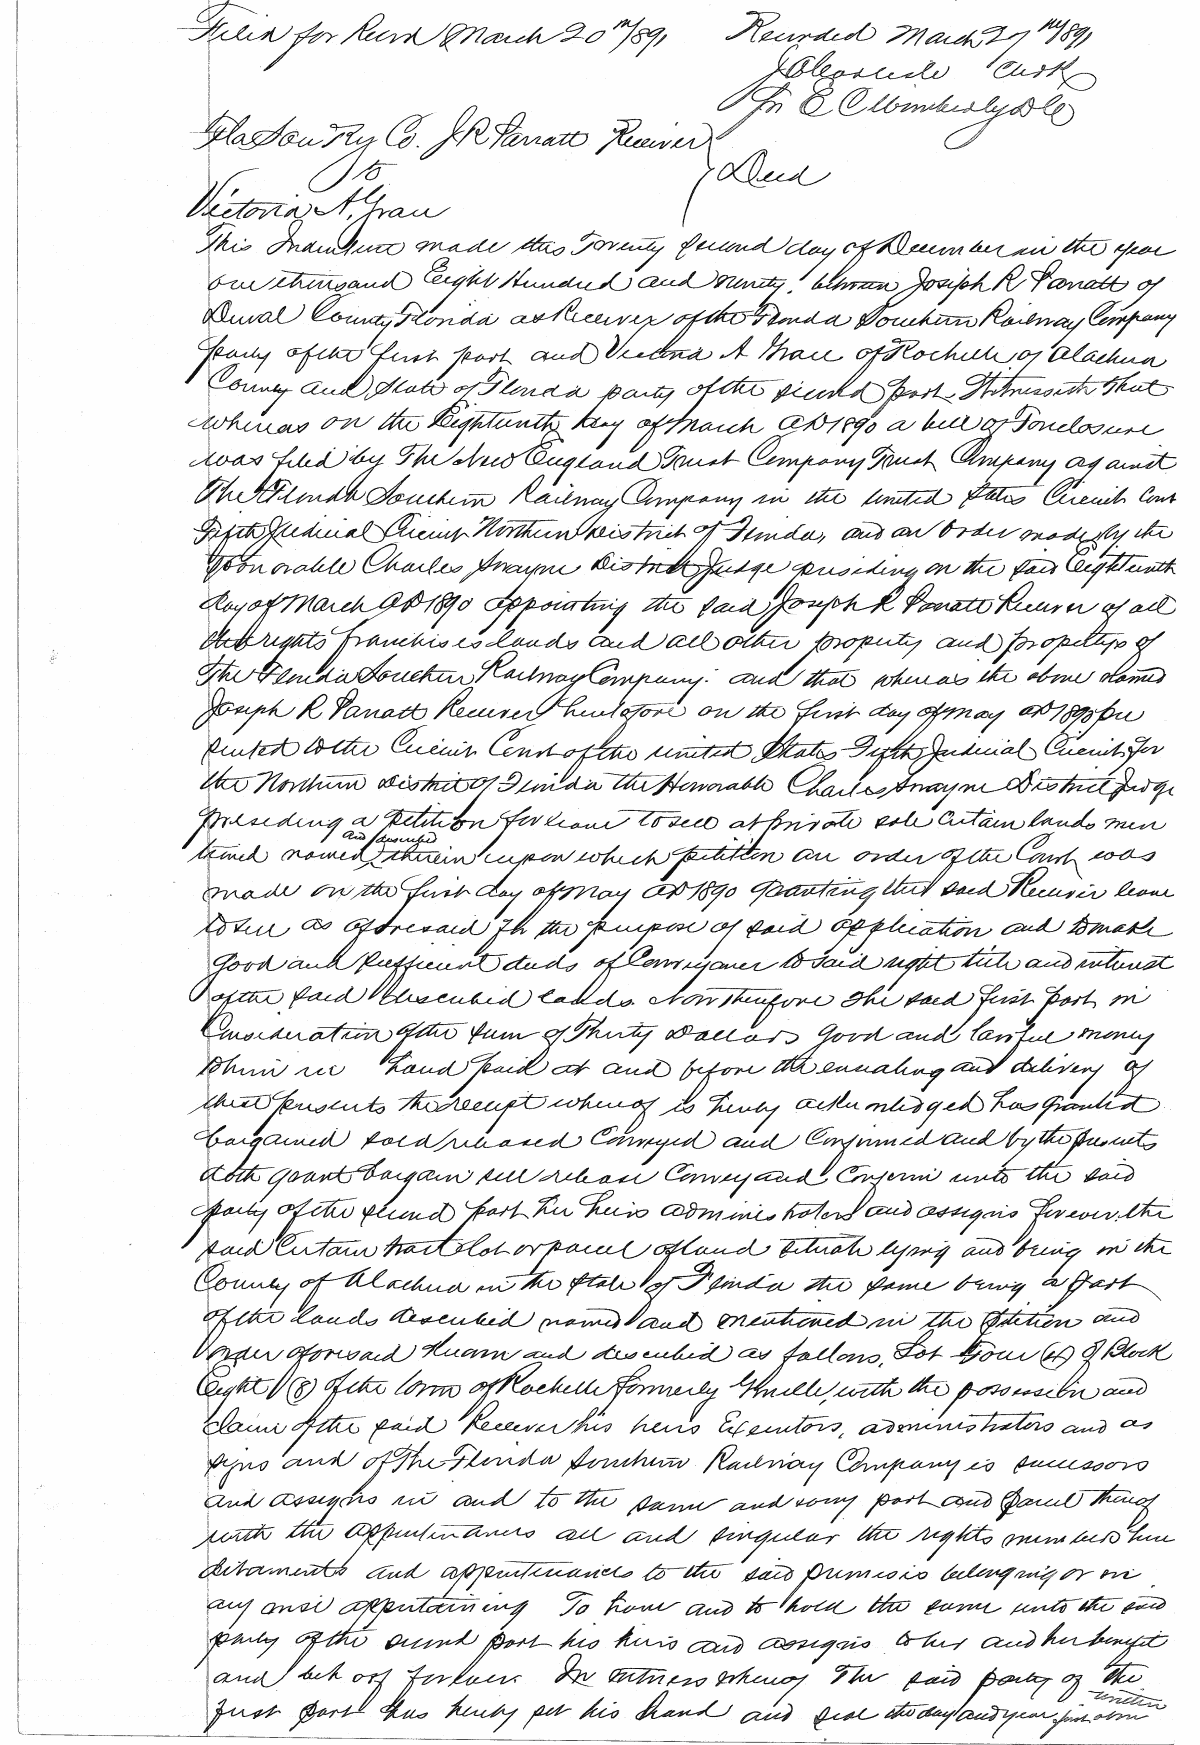 Filed for Record March 20th/891 Recorded March 27th/891
J A Carlisle Clerk
Per E C Wimberly DC
Fla Sou Ry Co. J R Parrott Receiver
to } Deed
Victoria A. Grace
This Indenture made this Twenty second day of December in the year
one thousand Eight Hundred and ninety, between Joseph R Parrott of
Duval County Florida as Receiver of the Florida Southern Railway Company
party of the first part and Victoria A Grace of Rochelle of Alachua
County and State of Florida party of the second part. Witnesseth That
whereas on the Eighteenth day of March AD 1890 a bill of Foreclosure
was filed by The New England Trust Company Trust Company against
The Florida Southern Railway Company in the United States Circuit Court
Fifth Judicial Circuit Northern District of Florida, and an Order made by the
Honorable Charles Swayne District Judge presiding on the said Eighteenth
day of March AD 1890 appointing the said Joseph R Parrott Receiver of all
the rights franchises lands and all other property and propertys of
The Florida Southern Railway Company. and that whereas the above named
Joseph R Parrott Receiver heretofore on the first day of May AD 1890 pre
sented to the Circuit Court of the United States Fifth Judicial Circuit for
the Northern District of Florida the Honorable Charles Swayne District Judge
presiding a petition for leave to sell at private sale certain lands men
tioned named and described therein upon which petition an order of the Court was
made on the first day of May AD 1890 granting the said Receiver leave
to sell as aforesaid for the purpose of said application and to make
good and sufficient deeds of Conveyance to said right title and interest
of the said described lands. Now therefore The said first part in
Consideration of the sum of Thirty Dollars good and lawful money
to him in hand paid at and before the ensealing and delivery of
these presents the receipt whereof is hereby acknowledged has granted
bargained sold released Conveyed and Confirmed and by the presents
doth grant bargain sell release Convey and Confirm unto the said
party of the second part her heirs administrators and assigns forever the
said Certain tract lot or parcel of land situate lying and being in the
County of Alachua in the State of Florida the same being a part
of the lands described named and mentioned in the Petition and
order aforesaid Known and described as follows, Lot Four (4) of Block
Eight (8) of the town of Rochelle formerly Gruelle, with the possession and
claim of the said Receiver his heirs Executors, administrators and as
signs and of The Florida Southern Railway Company is successors
and assigns in and to the same and every part and parcel thereof
with the appurtenances all and singular the rights members here
ditaments and appurtenances to the said premises belonging or in
any wise appertaining To have and to hold the same unto the said
party of the second part his heirs and assigns to her and her benefit
and behoof forever. In witness whereof The said party of the
first part has hereby set his hand and seal the day and year first above written